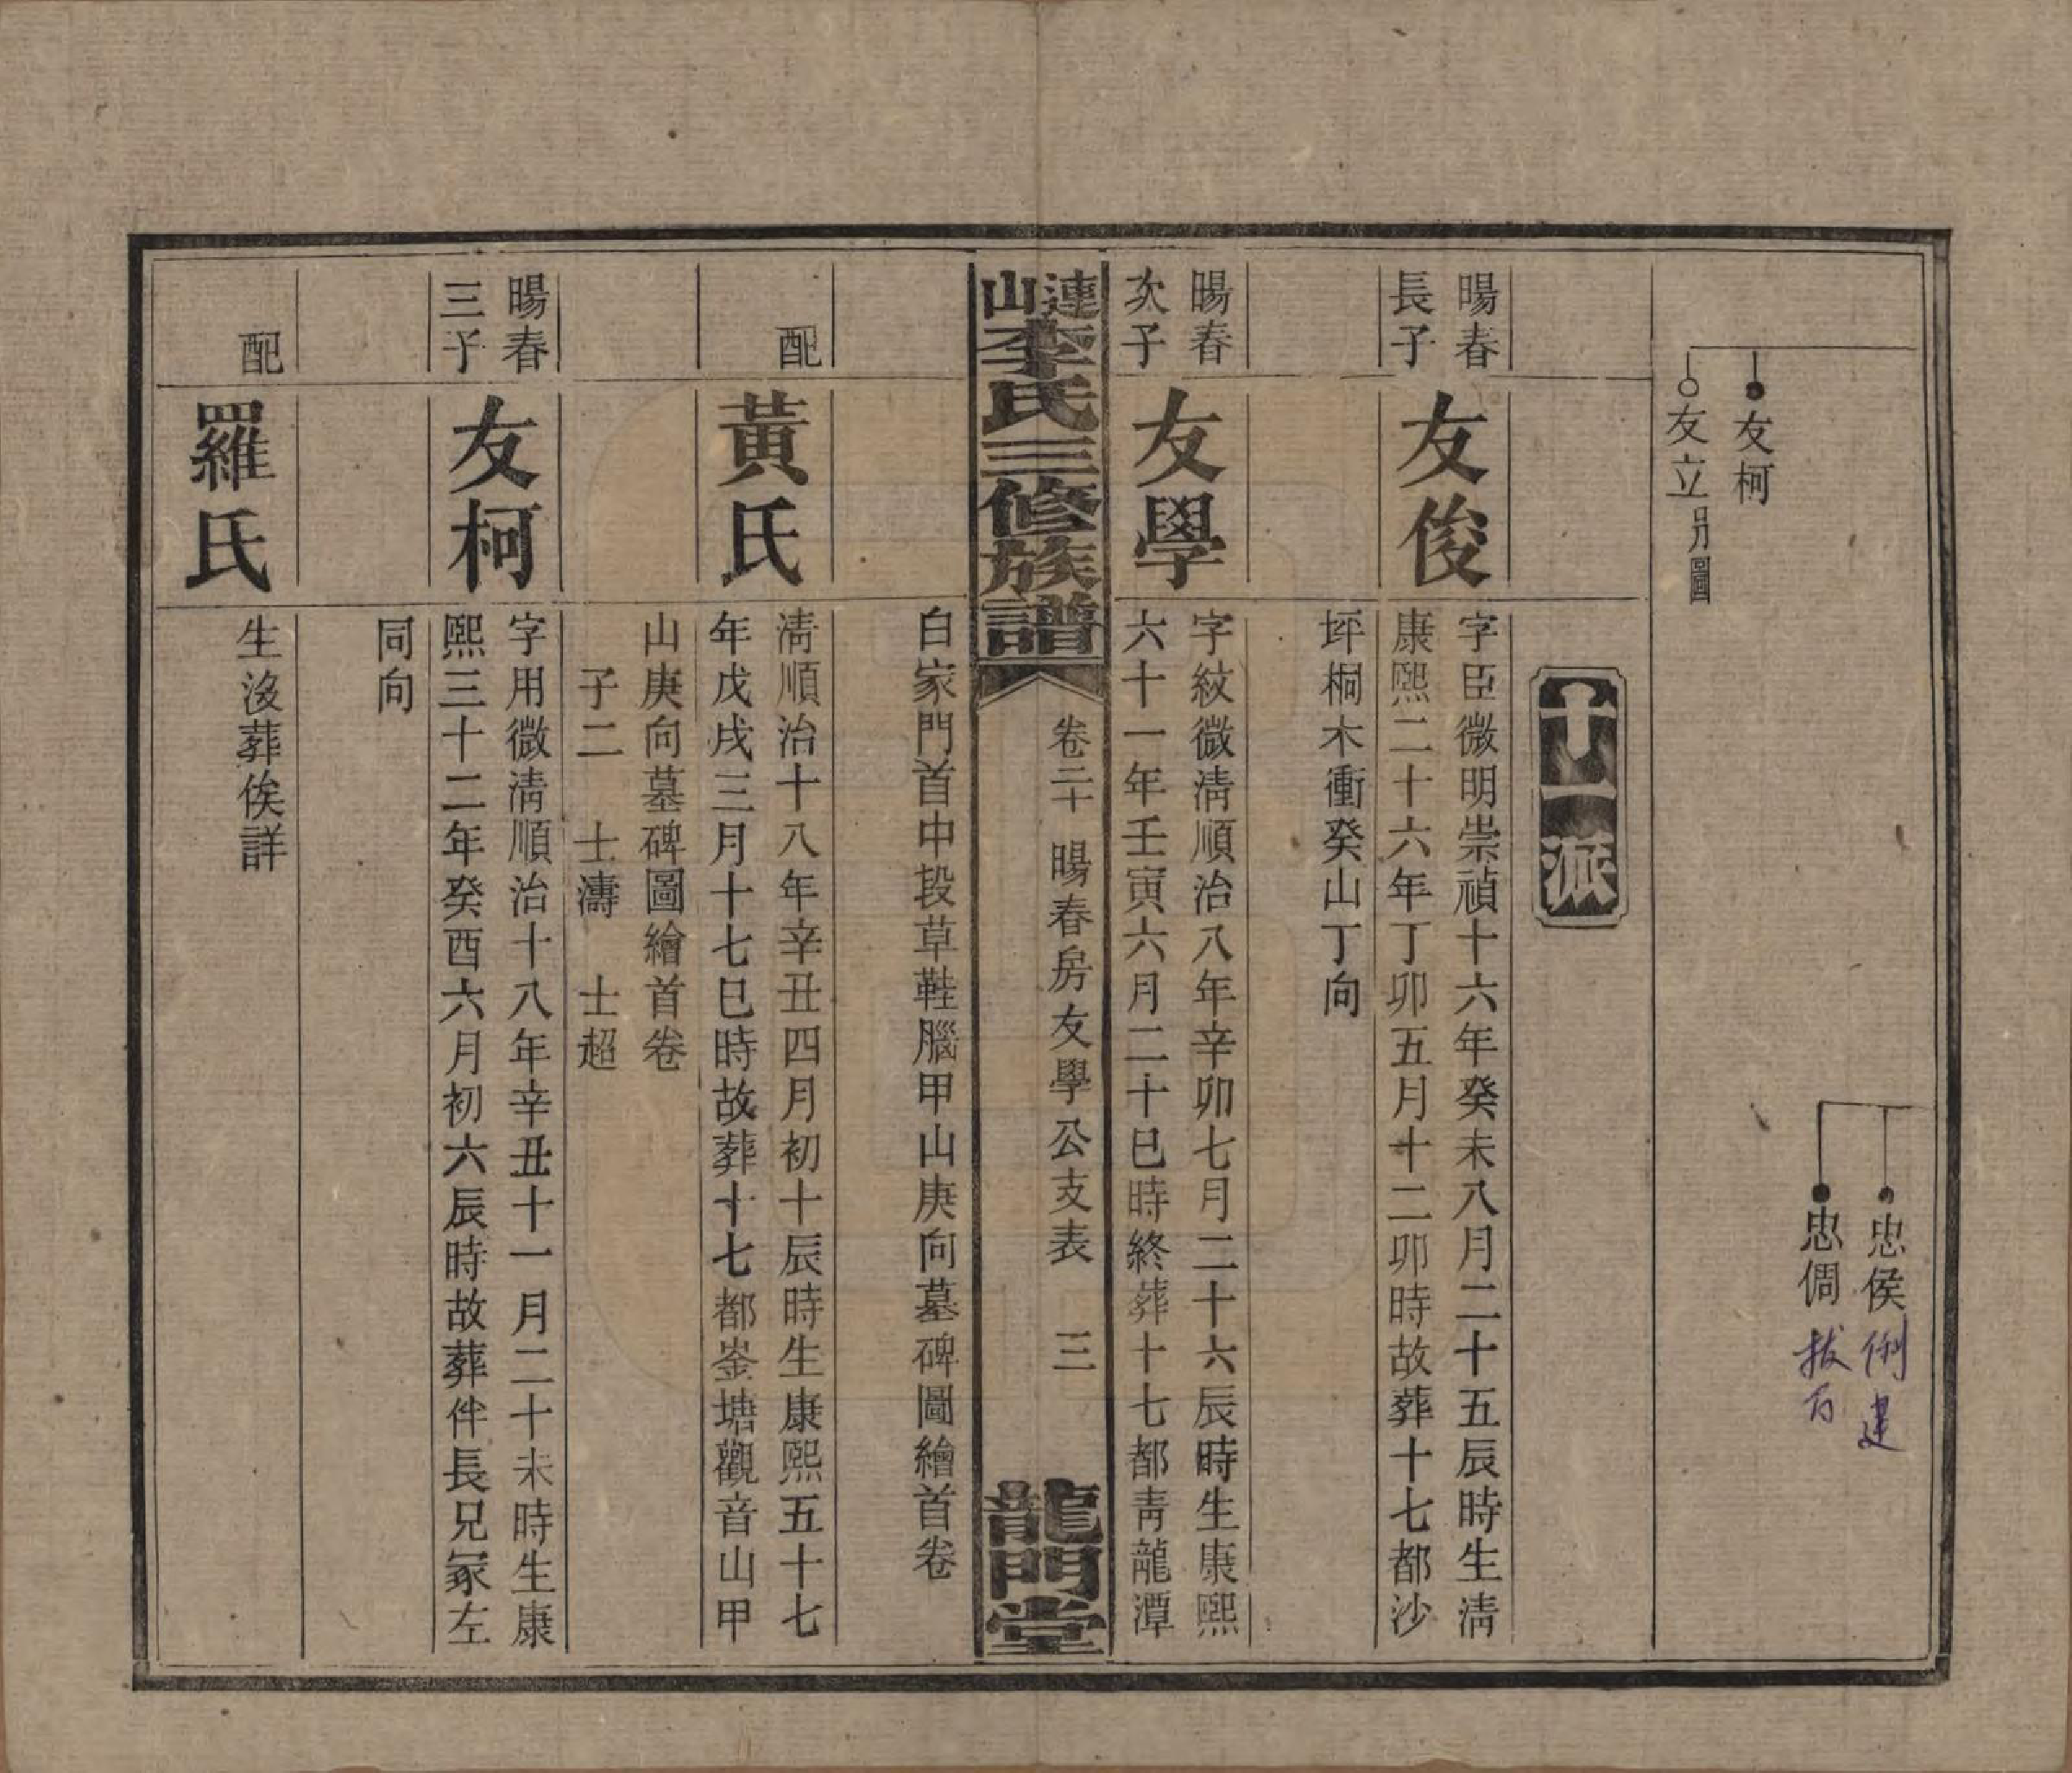 友柯
友立另圖
忠侯
忠倜
十一派
暘春
長子
友俊
字臣微明崇禎十六年癸未八月二十五辰時生清
康熙二十六年丁卯五月十二卯時故葬十七都沙
坪桐木衝癸山丁向
暘春
次子
友學
字紋微清順治八年辛卯七月二十六辰時生康熙
六十一年壬寅六月二十巳時終葬十七都青龍潭
連山李氏三修族譜
卷二十 暘春房友學公支表 三
龍門堂
白家門首中段草鞋腦甲山庚向墓碑圖繪首卷
配
黃氏
清順治十八年辛丑四月初十辰時生康熙五十七
年戊戌三月十七巳時故葬十七都崟塘觀音山甲
山庚向墓碑圖繪首卷
子二 士濤 士超
暘春
三子
友柯
字用微清順治十八年辛丑十一月二十未時生康
熙三十二年癸酉六月初六辰時故葬伴長兄冢左
同向
配
羅氏
生沒葬俟詳